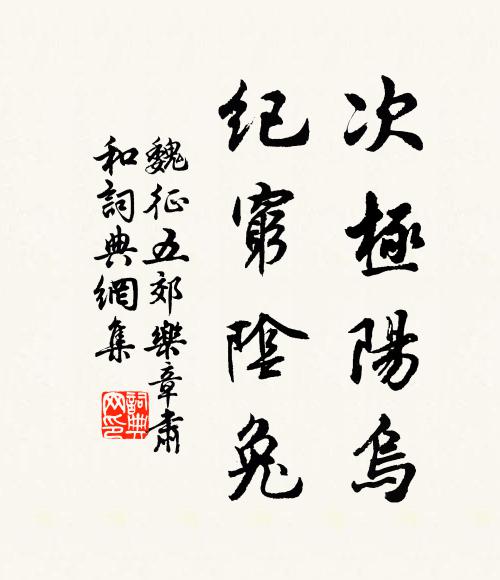 次極陽烏
紀窮陰兔
魏征五郊樂章肅
和詞典網集
詞典
网印